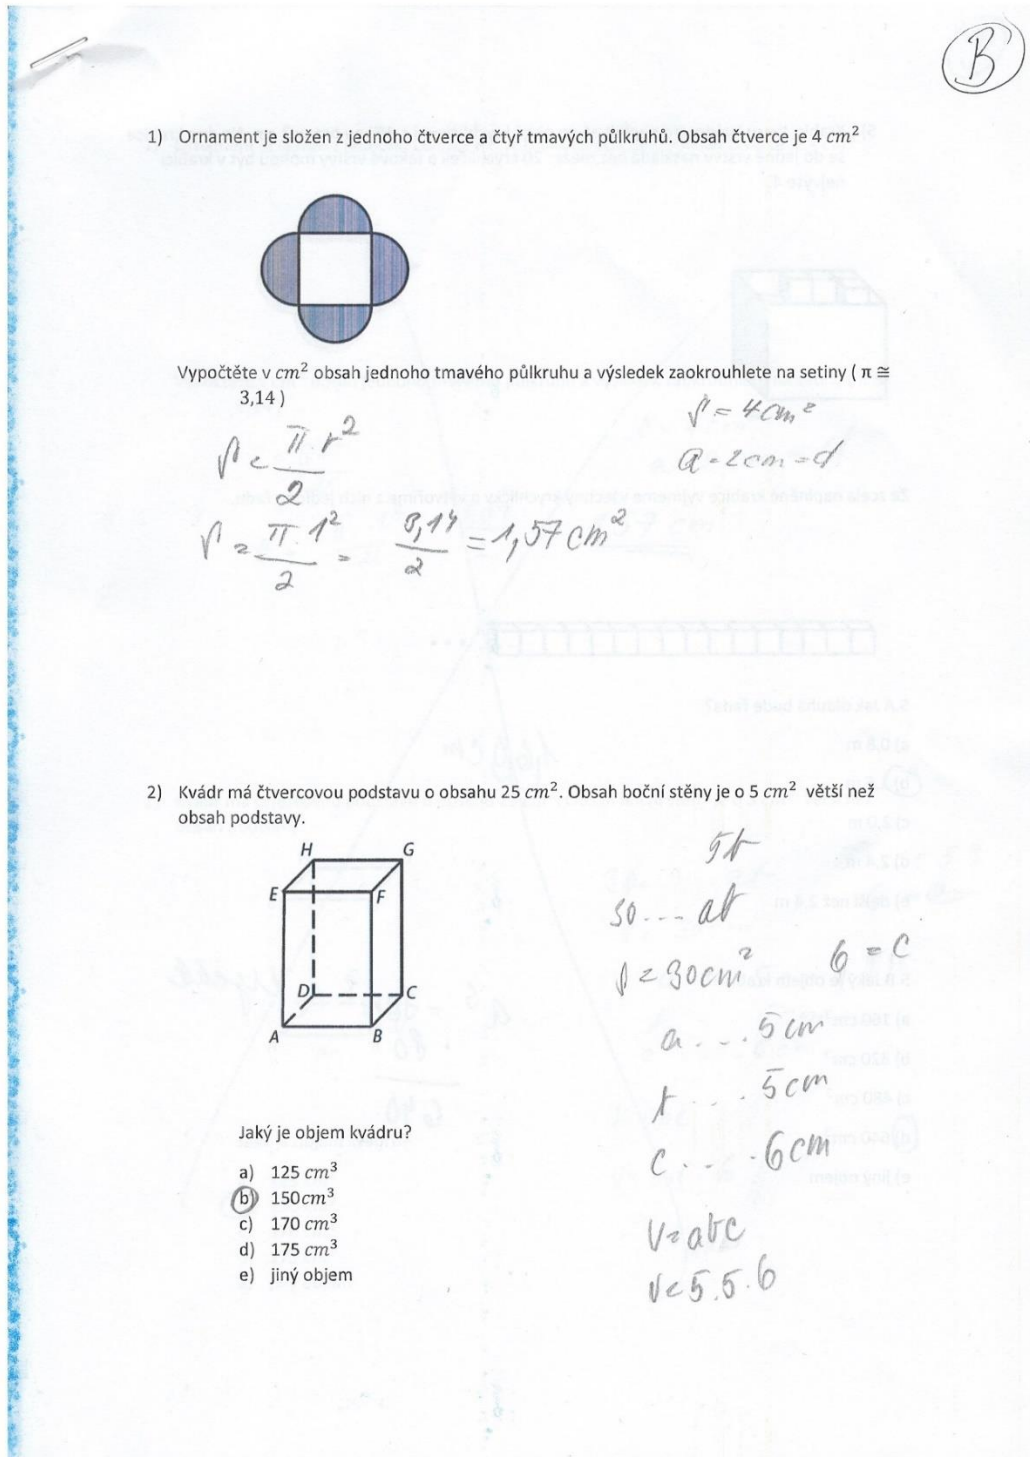 B
1) Ornament je složen z jednoho čtverce a čtyř tmavých půlkruhů. Obsah čtverce je 4 cm²
Vypočtěte v cm² obsah jednoho tmavého půlkruhu a výsledek zaokrouhlete na setiny ( π ≅
3,14 )
S = 4 cm²
a = 2 cm = d
S = π · r² / 2
S = π · 1² / 2 = 3,14 / 2 = 1,57 cm²
2) Kvádr má čtvercovou podstavu o obsahu 25 cm². Obsah boční stěny je o 5 cm² větší než
obsah podstavy.
H G
E F
D C
A B
30 ... ab
S = 30 cm² 6 = c
a ... 5 cm
b ... 5 cm
c ... 6 cm
Jaký je objem kvádru?
a) 125 cm³
b) 150cm³
c) 170 cm³
d) 175 cm³
e) jiný objem
V = abc
V = 5.5.6